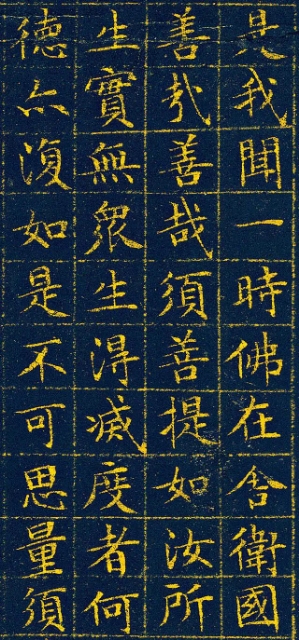 是我聞一時佛在舍衛國
善哉善哉須菩提如汝所
生實無眾生得滅度者何
德亦復如是不可思量須